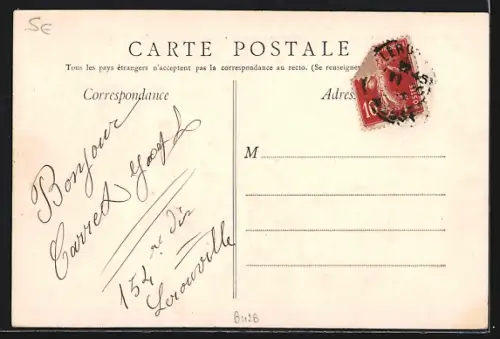 5E
CARTE POSTALE
Tous les pays étrangers n'acceptent pas la correspondance au recto. (Se renseigner
Correspondance
Adres
10
POSTES
M
Bonjour
Carret
154
Lerouville
BU2B